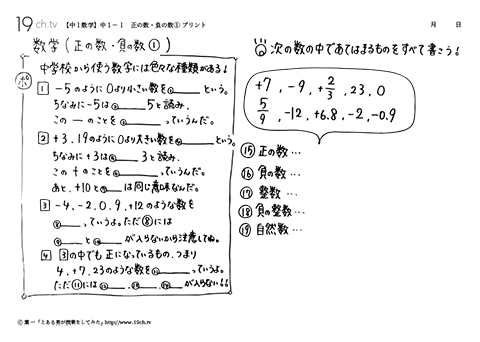 19ch.tv 【中1数学】中1-1 正の数・負の数① プリント 月 日
数学(正の数・負の数①)
中学校から使う数字には色々な種類がある!
ポ
1 -5のように0より小さい数を①_____という。
ちなみに-5は②_____5と読み、
この-のことを③_____っていうんだ。
2 +3,19のように0より大きい数を④_____という。
ちなみに+3は⑤_____3と読み、
この+のことを⑥_____っていうんだ。
あと、+10と⑦_____は同じ意味なんだ。
3 -4,-2,0,9,+12のような数を
⑧_____っていうよ。ただ⑧には
⑨_____と⑩_____が入らないから注意してね。
4 3の中でも正になっているもの、つまり
4,+7,23のような数を⑪_____っていうよ。
ただ⑪には⑫_____⑬_____⑭_____が入らない!!
次の数の中であてはまるものをすべて書こう!
+7, -9, +2/3, 23, 0
5/9, -12, +6.8, -2, -0.9
⑮ 正の数…
⑯ 負の数…
⑰ 整数…
⑱ 負の整数…
⑲ 自然数…
© 葉一「とある男が授業をしてみた」http://www.19ch.tv